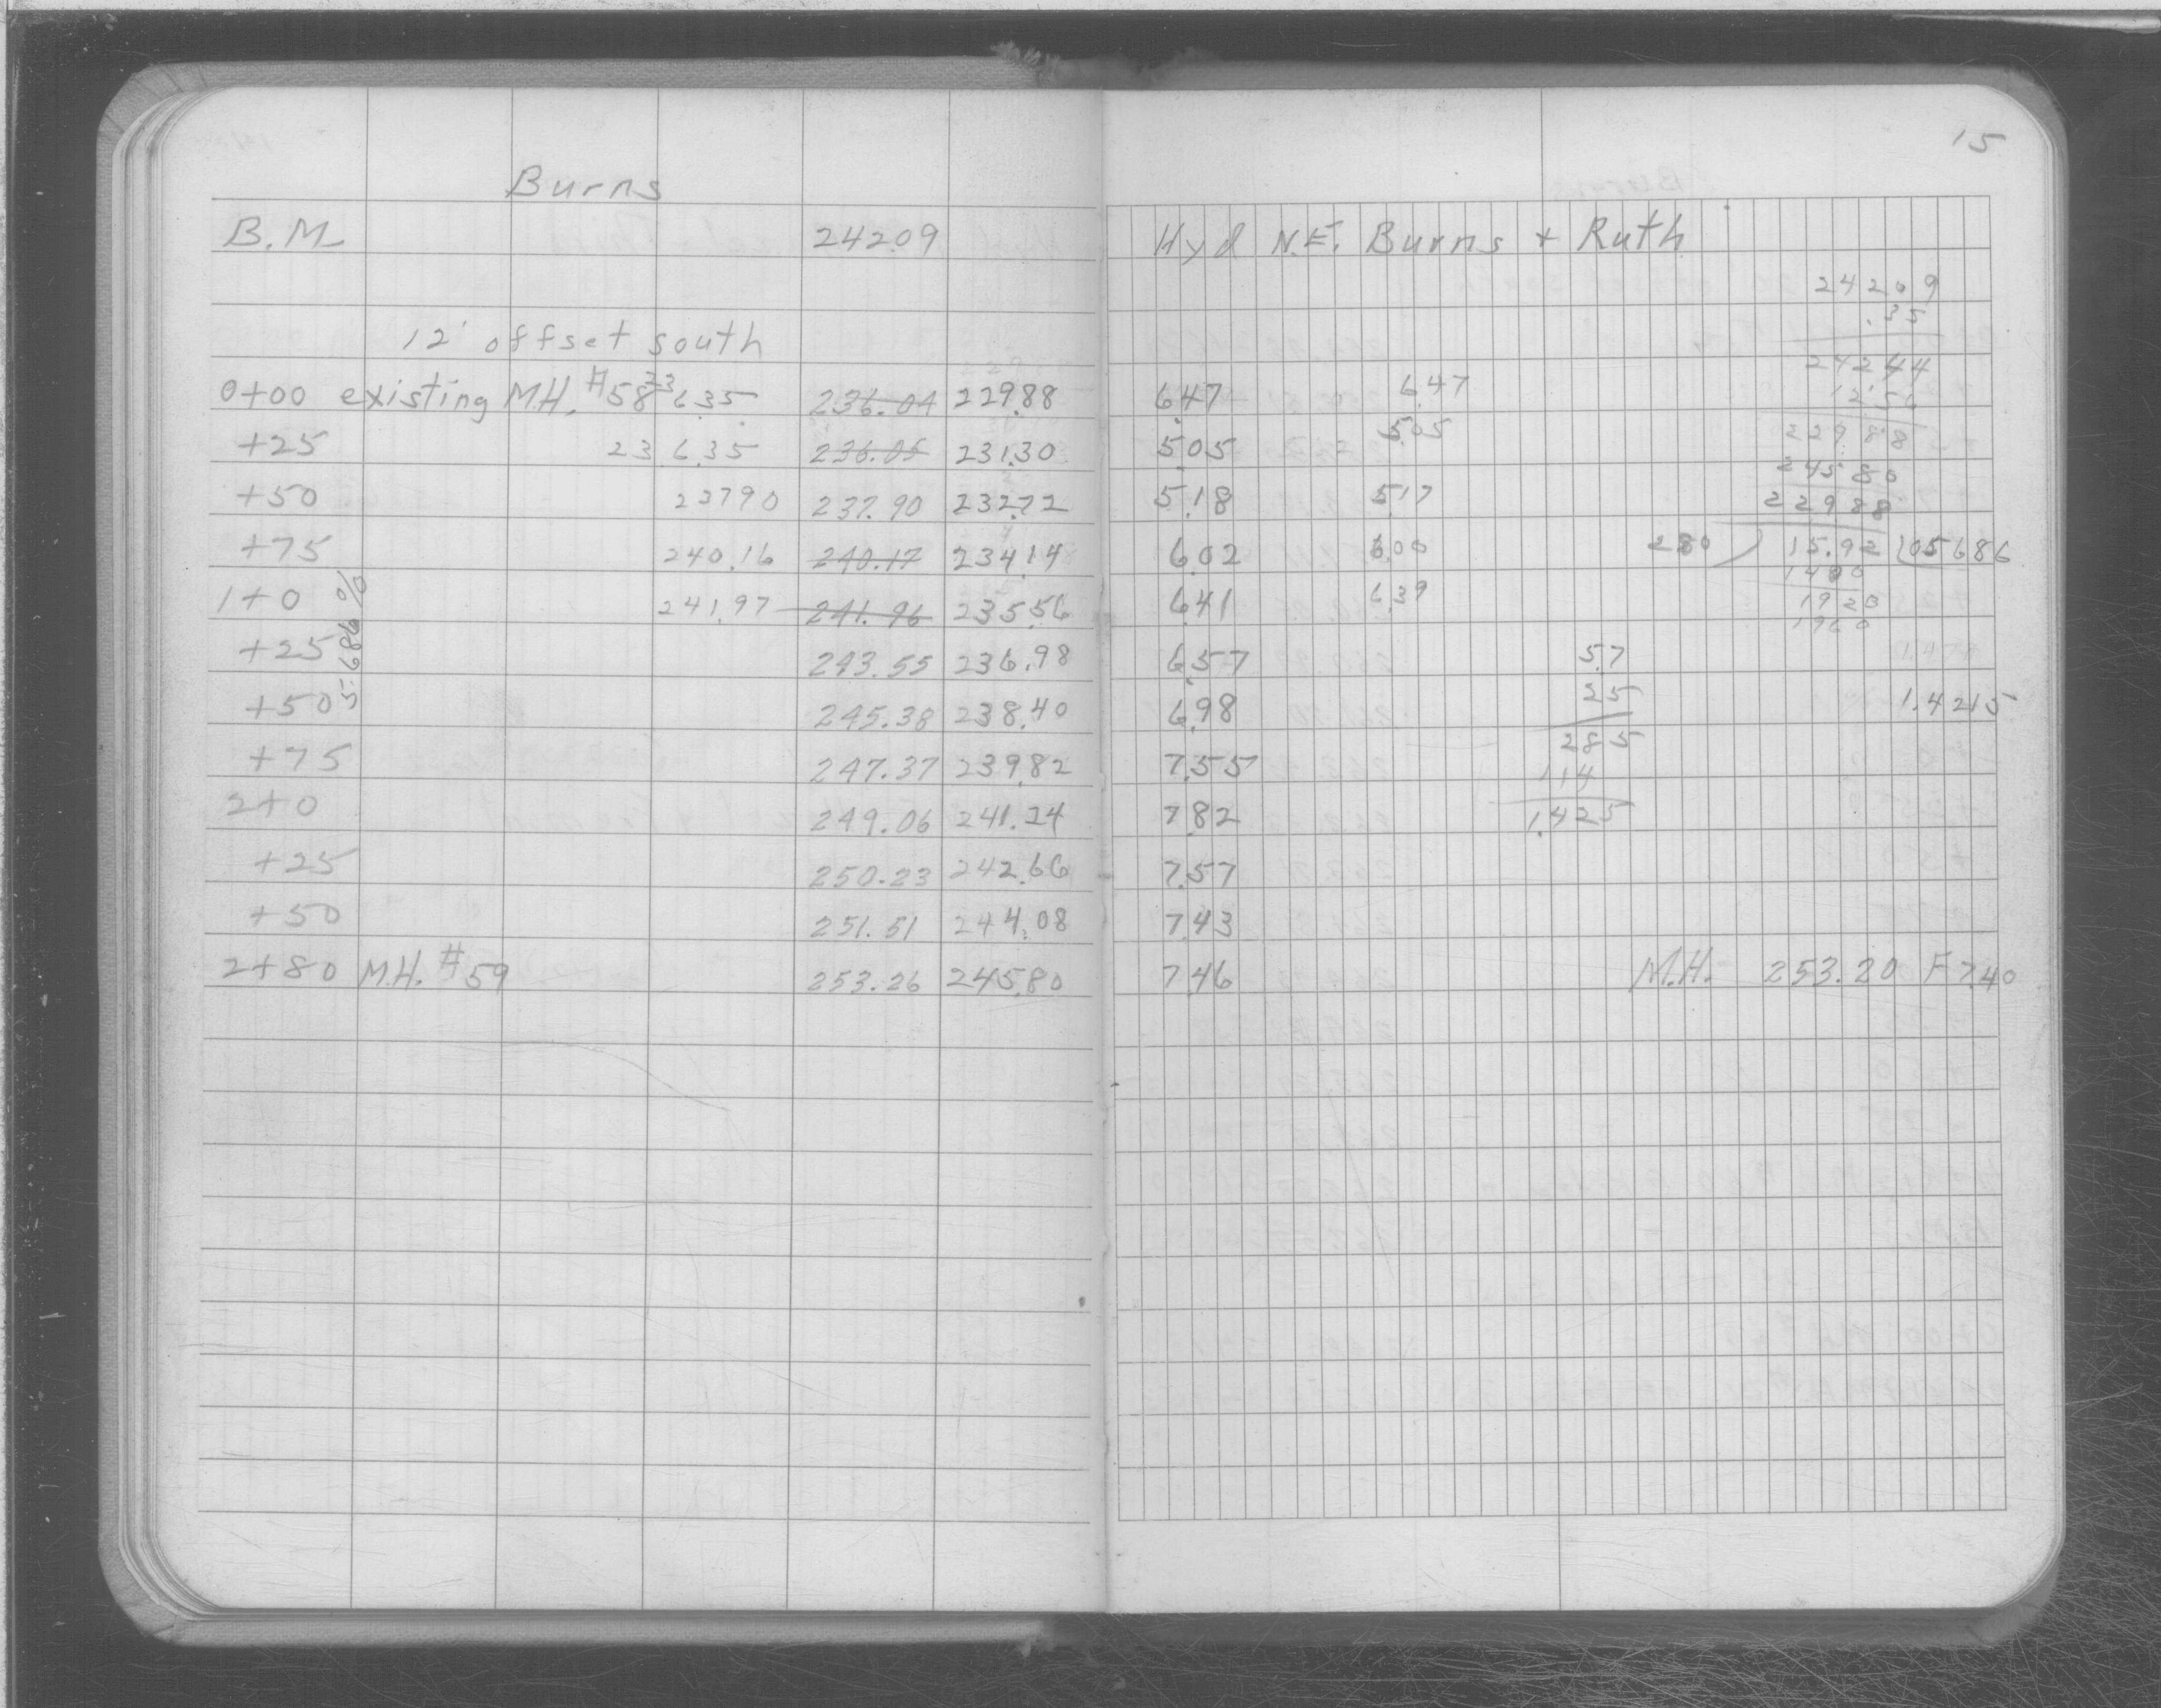 15
Burns
B.M. 242.09 Hyd N.E. Burns + Ruth
242.09
.35
12' offset south
242.44
0+00 existing M.H. #58 236.35 236.04 229.88 6.47 6.47
12.56
+25 236.35 236.05 231.30 5.05 5.05
229.88
245.80
+50 237.90 237.90 232.72 5.18 5.17
229.88
+75 240.16 240.17 234.14 6.02 6.00 280 ) 15.92 (05686
1400
1+0 241.97 241.96 235.56 6.41 6.39
1920
1960
5.686 %
+25 243.55 236.98 6.57 5.7
+50 245.38 238.40 6.98 25 1.4215
285
+75 247.37 239.82 7.55
114
2+0 249.06 241.24 7.82 1.425
+25 250.23 242.66 7.57
+50 251.51 244.08 7.43
2+80 M.H. #59 253.26 245.80 7.46 M.H. 253.20 F 7.40